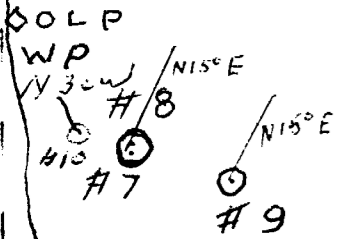 OLP
WP
N30W
#8
N15°E
#10
#7
N15°E
#9